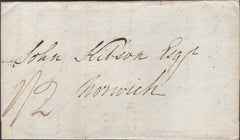 John Kitson Esqr
Norwich
1/2